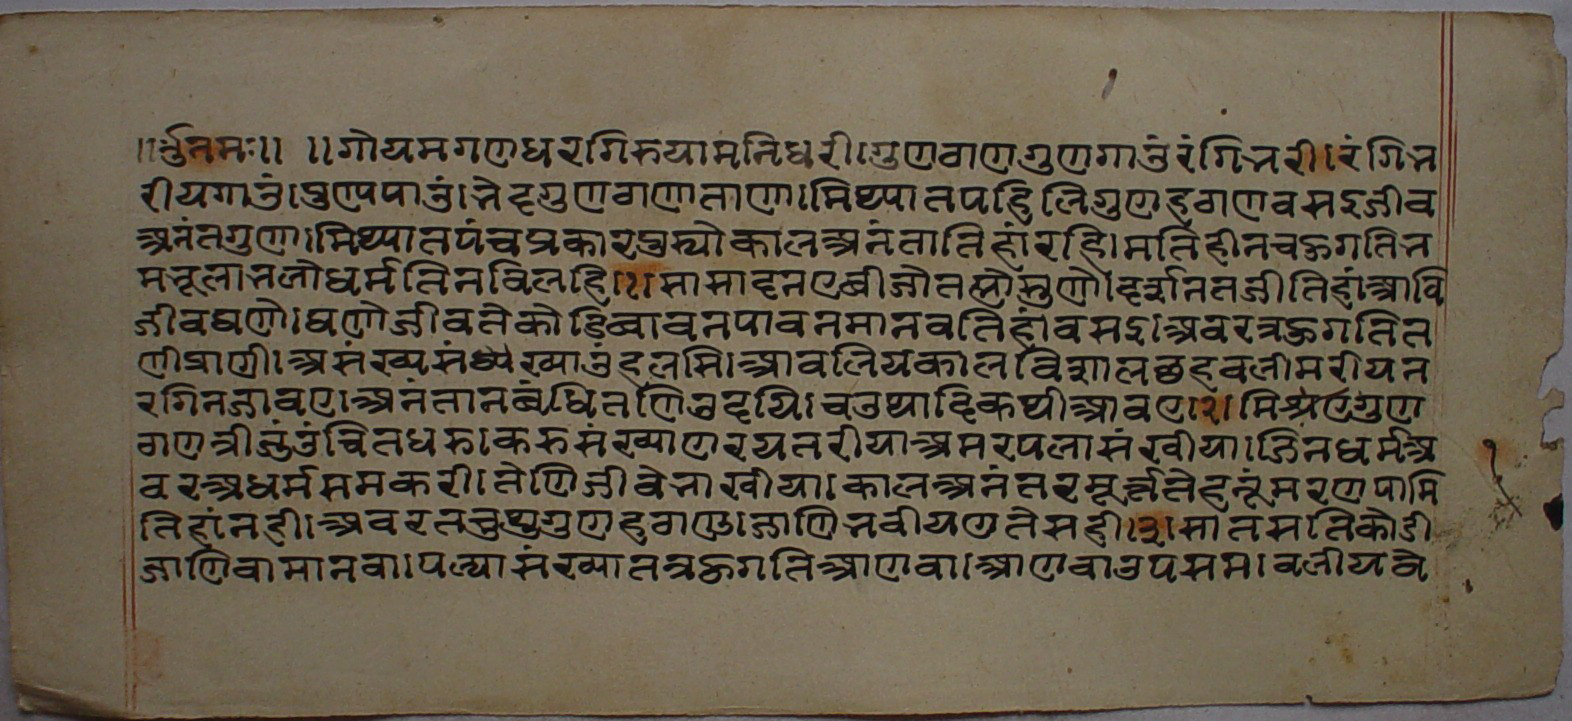 ॥र्नुनमः॥ ॥गोयमगणधरगिरुयामनिधरी।गुणठाणगुणगाउंरंगिनरी।रंगिन
रीयगाउं।पुण्यपाउं।चेदृगुणठाणाताणा।मिथ्यातपहिलिगुणहठाणवसइजीव
अनंतगुणा।मिथ्यातपंचप्रकारपरच्योकालअनंतातिहांरहि।मतिहीनचऊगतिन
मनूलानलोधर्मतिनविलहि।१।सासादनएबीजोतम्हेसुणो।दर्शनतजीतिहांआवि
जीवघणो।घणोजीवतेकोडिबावनपावनमानवतिहांवसइ।अवरत्रऊगतित
णीप्राणी।असंख्यसंख्याउंहलसि।आवलियकालविशालछहवलीमरीयन
रगिनजावए।अनंतानबंधितणिउदयि।चउथादिकथीआवए।२।मिश्रएगुण
ठाणत्रीजुंउंचितधरु।करुसंख्याणरयतरीयाअमरपलासंखीया।जिनधर्मअ
वरअधर्मसमकरी।तेणिजीवेनाखीया।कालअनंतरमूर्त्ततेहनूंमरणपामि
तिहांनही।अवरतचुथुगुणहठाण।जाणिनवीयणतेसही।३।सातसतिकोडी
जाणिवांमानवा।पल्यासंख्यातत्रऊगतिआणवा।आणवाउपंसम।वलीयवे
१